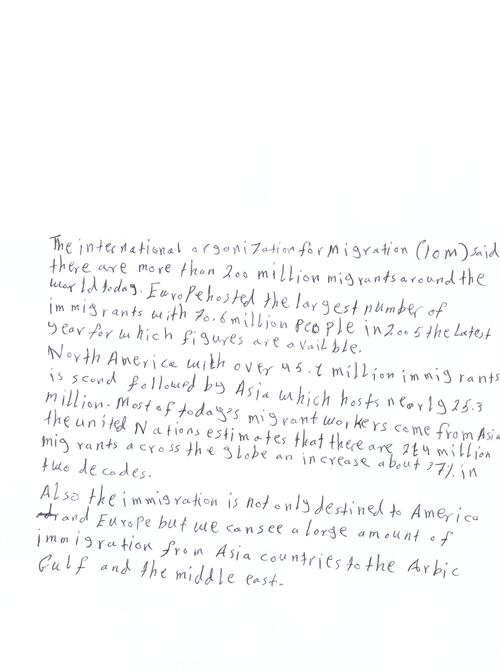 The international organization for Migration (Iom) said
there are more than 200 million migrants around the
world today. Europe hosted the largest number of
immigrants with 70.6 million People in 2005 the latest
year for which figures are availble.
North America with over 45. million immigrants
is scond followed by Asia which hosts nearly 25.3
million. Most of today's migrant workers come from Asia
the united Nations estimates that there are million
migrants across the globe an increase about 37% in
two decades.
Also the immigration is not only destined to America
and Europe but we can see a large amount of
immigration from Asia countries to the Arbic
Gulf and the middle east.